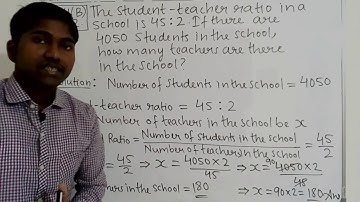 (B) The student-teacher ratio in a
school is 45:2 If there are
4050 students in the school,
how many teachers are there
in the school?
lution: Number of students in the school = 4050
t-teacher ratio = 45:2
Number of teachers in the school be x
Ratio = Number of students in the school / Number of teachers in the school = 45/2
= 45/2 ⇒ x = 4050×2/45 ⇒ x = 90 4050×2/45
hers in the school = 180 ⇒ x = 90×2 = 180 Ans